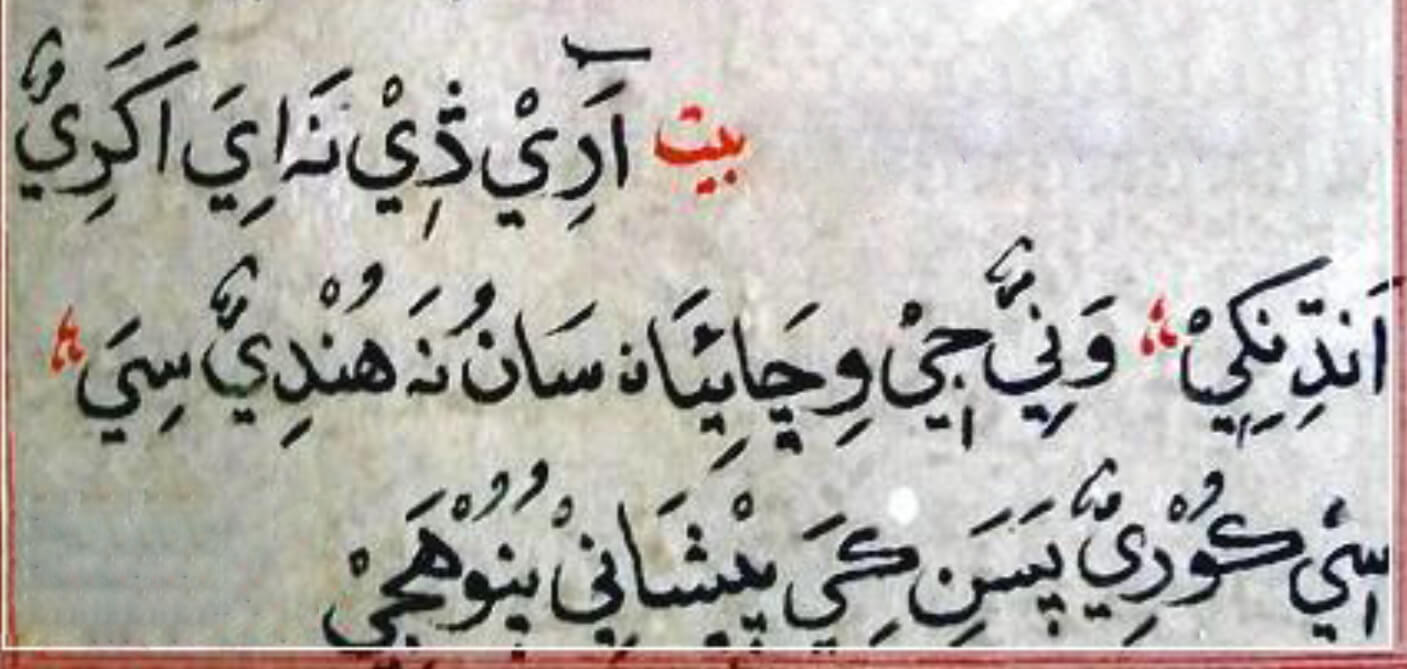 بيت آَرِيْ ڎِيْ نَہ اِيَ اَکَرِيّٖ
اَندِّنِکِيْ ؞ وَنِيّٖ جِيْ وِچَاِئَاہ سَانُ نَہ هُنْدِيّٖ سِيَ ؞
سِئ ڪُوْرِيّٖ پَسَنِ ڪِيَ پِيْشَانِيْ پُنُوْهَجِيْ